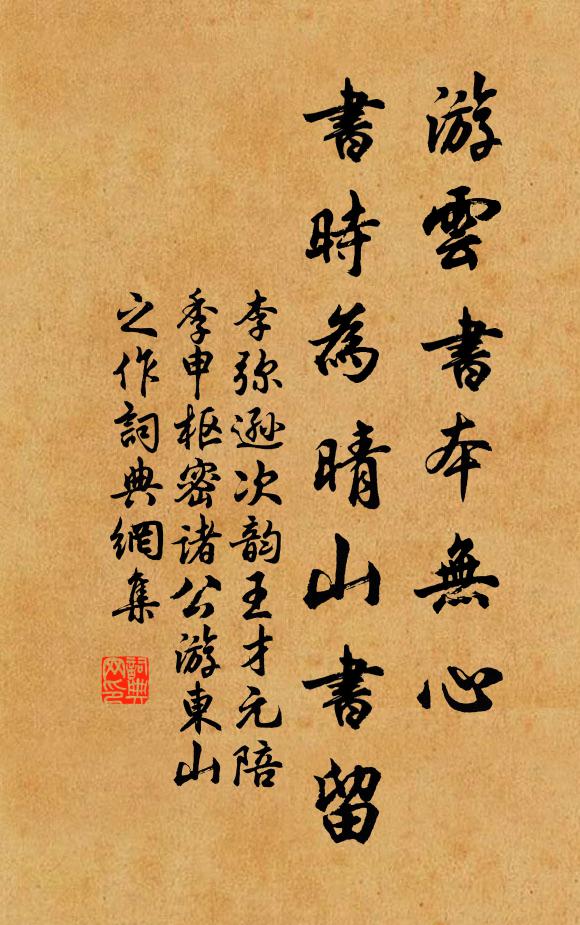 游雲書本無心
書時為晴山書留
李弥遜次韵王才元陪
季申枢密诸公游東山
之作詞典網集
詞典网印